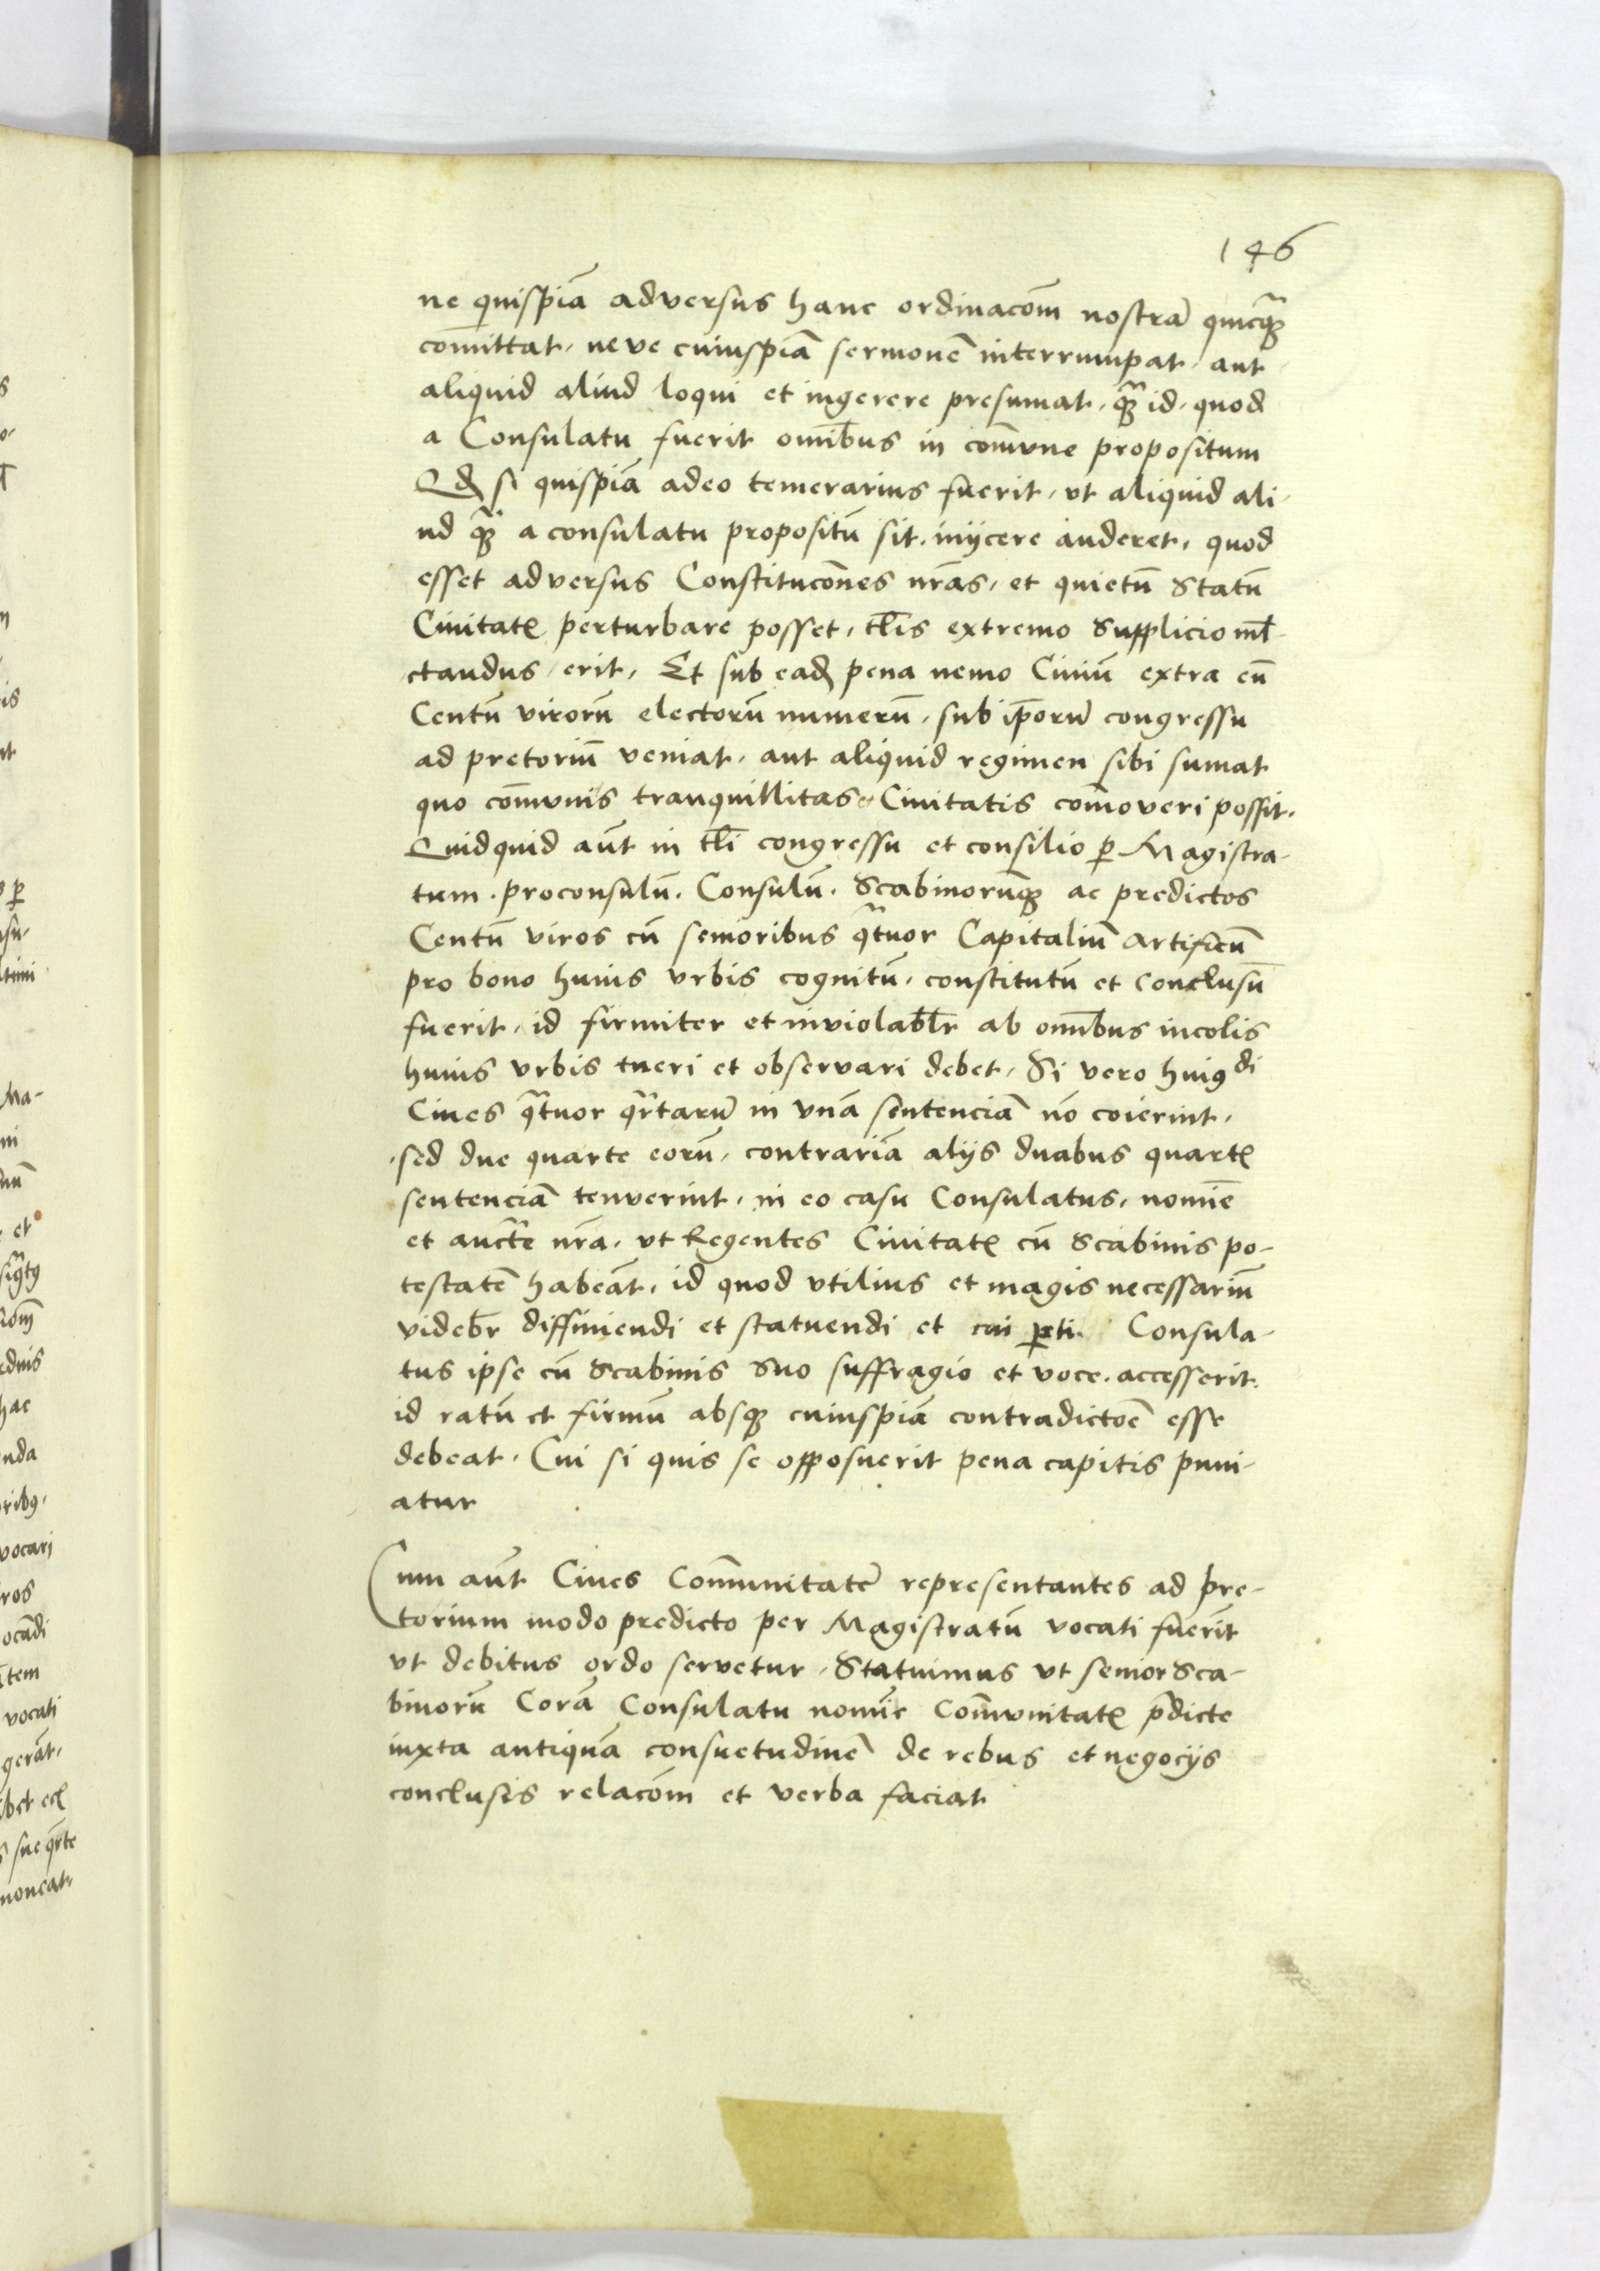 146
ne quispiā adversus hanc ordinacōm nostrā quicq̃ꝫ
comittat, neve cuiuspiā sermonē interrumpat, aut
aliquid aliud loqui et ingerere presumat, q̃ꝫ id, quod
a Consulatu fuerit omībus in cōmune propositum
Qđ si quispiā adeo temerarius fuerit, ut aliquid ali-
ud q̃ꝫ a consulatu propositū sit, inijcere auderet, quod
esset adversus Constitucōnes nr̄as, et quietū Statū
Civitatꝭ perturbare posset, tl̄is extremo Supplicio ml̄-
ctandus erit, Et sub eadꝫ pena nemo Civiū extra eū
Centū virorū electorū numerū, sub ip̄orū congressu
ad pretoriū veniat, aut aliquid regimen sibi sumat
quo cōmunis tranquillitas Civitatis comoveri possit.
Quidquid aūt in tl̄i congressu et consilio ꝑ Magistra-
tum . proconsulū . Consulū . Scabinorumqꝫ ac predictos
Centū viros cū senioribus q̃tuor Capitaliū Artificū
pro bono huius urbis cognitū, constitutū et Conclusū
fuerit, id firmiter et inviolabl̄r ab omībus incolis
huius vrbis tueri et observari debet, Si vero huiꝰdi
Cives q̃tuor q̃rtarū in vnā sentenciā nō coierint,
sed due quarte eorū, contrariā alijs duabus quartꝭ
sentenciā tenverint, in eo casu Consulatus, nomīe
et auct̄e nr̄a, ut Regentes Civitatꝭ cū Scabinis po-
testatē habeāt, id quod vtilius et magis necessariū
videb̄r diffiniendi et statuendi et cui ꝑti Consula-
tus ipse cū Scabinis suo suffragio et voce accesserit,
id ratū et firmū absqꝫ cuiuspiā contradictōe esse
debeat, Cui si quis se opposuerit pena capitis puni-
atur
Cum aūt Cives Com̄unitatē representantes ad pre-
torium modo predicto per Magistratū vocati fuerīt
vt debitus ordo servetur, Statuimus ut senior Sca-
binorū Corā Consulatu nomīe Com̄unitatꝭ p̄dicte
iuxta antiquā consuetudinē de rebus et negocijs
conclusis relacōm et verba faciat